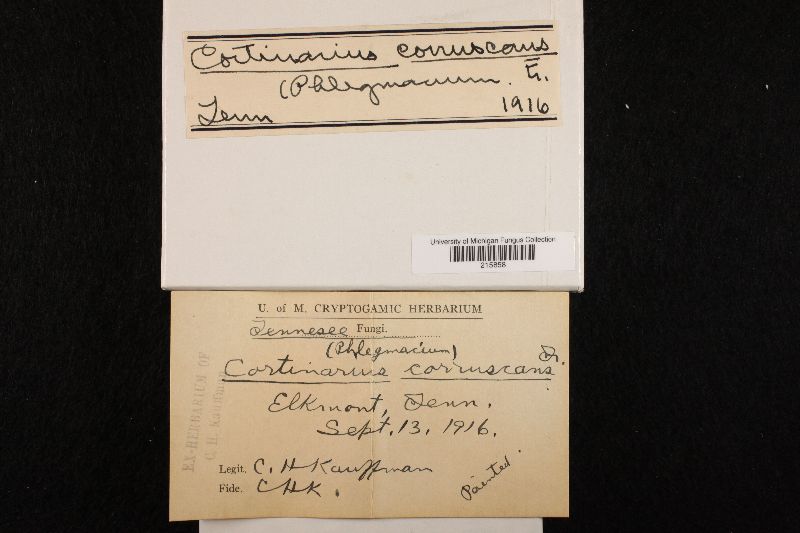 Cortinarius corruscans
(Phlegmacium. Fr.
Tenn 1916
University of Michigan Fungus Collection
215858
U. of M. CRYPTOGAMIC HERBARIUM
Tennesee Fungi.
(Phlegmacium)
Cortinarius corruscans Fr.
Elkmont, Tenn.
Sept. 13. 1916.
EX-HERBARIUM OF
C. H. Kauffman
Legit. C. H Kauffman
Fide. CHK.
Painted.